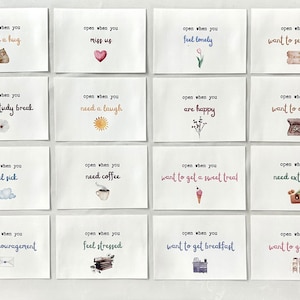 open when you
a hug
open when you
miss us
open when you
feel lonely
open when you
want to
open when you
study break
open when you
need a laugh
open when you
are happy
open when you
want to
open when you
sick
open when you
need coffee
open when you
want to get a sweet treat
open when you
need
open when you
open when you
feel stressed
open when you
want to get breakfast
open when you
want to